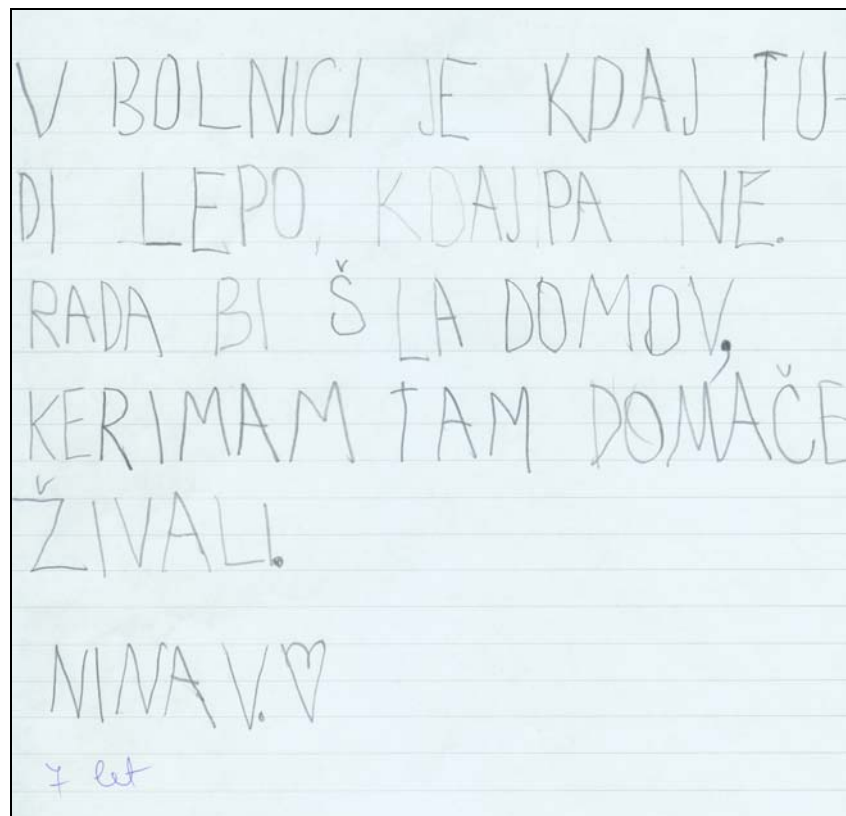 V BOLNICI JE KDAJ TU-
DI LEPO, KDAJ PA NE.
RADA BI ŠLA DOMOV,
KER IMAM TAM DOMAČE
ŽIVALI.
NINA V. ♡
7 let